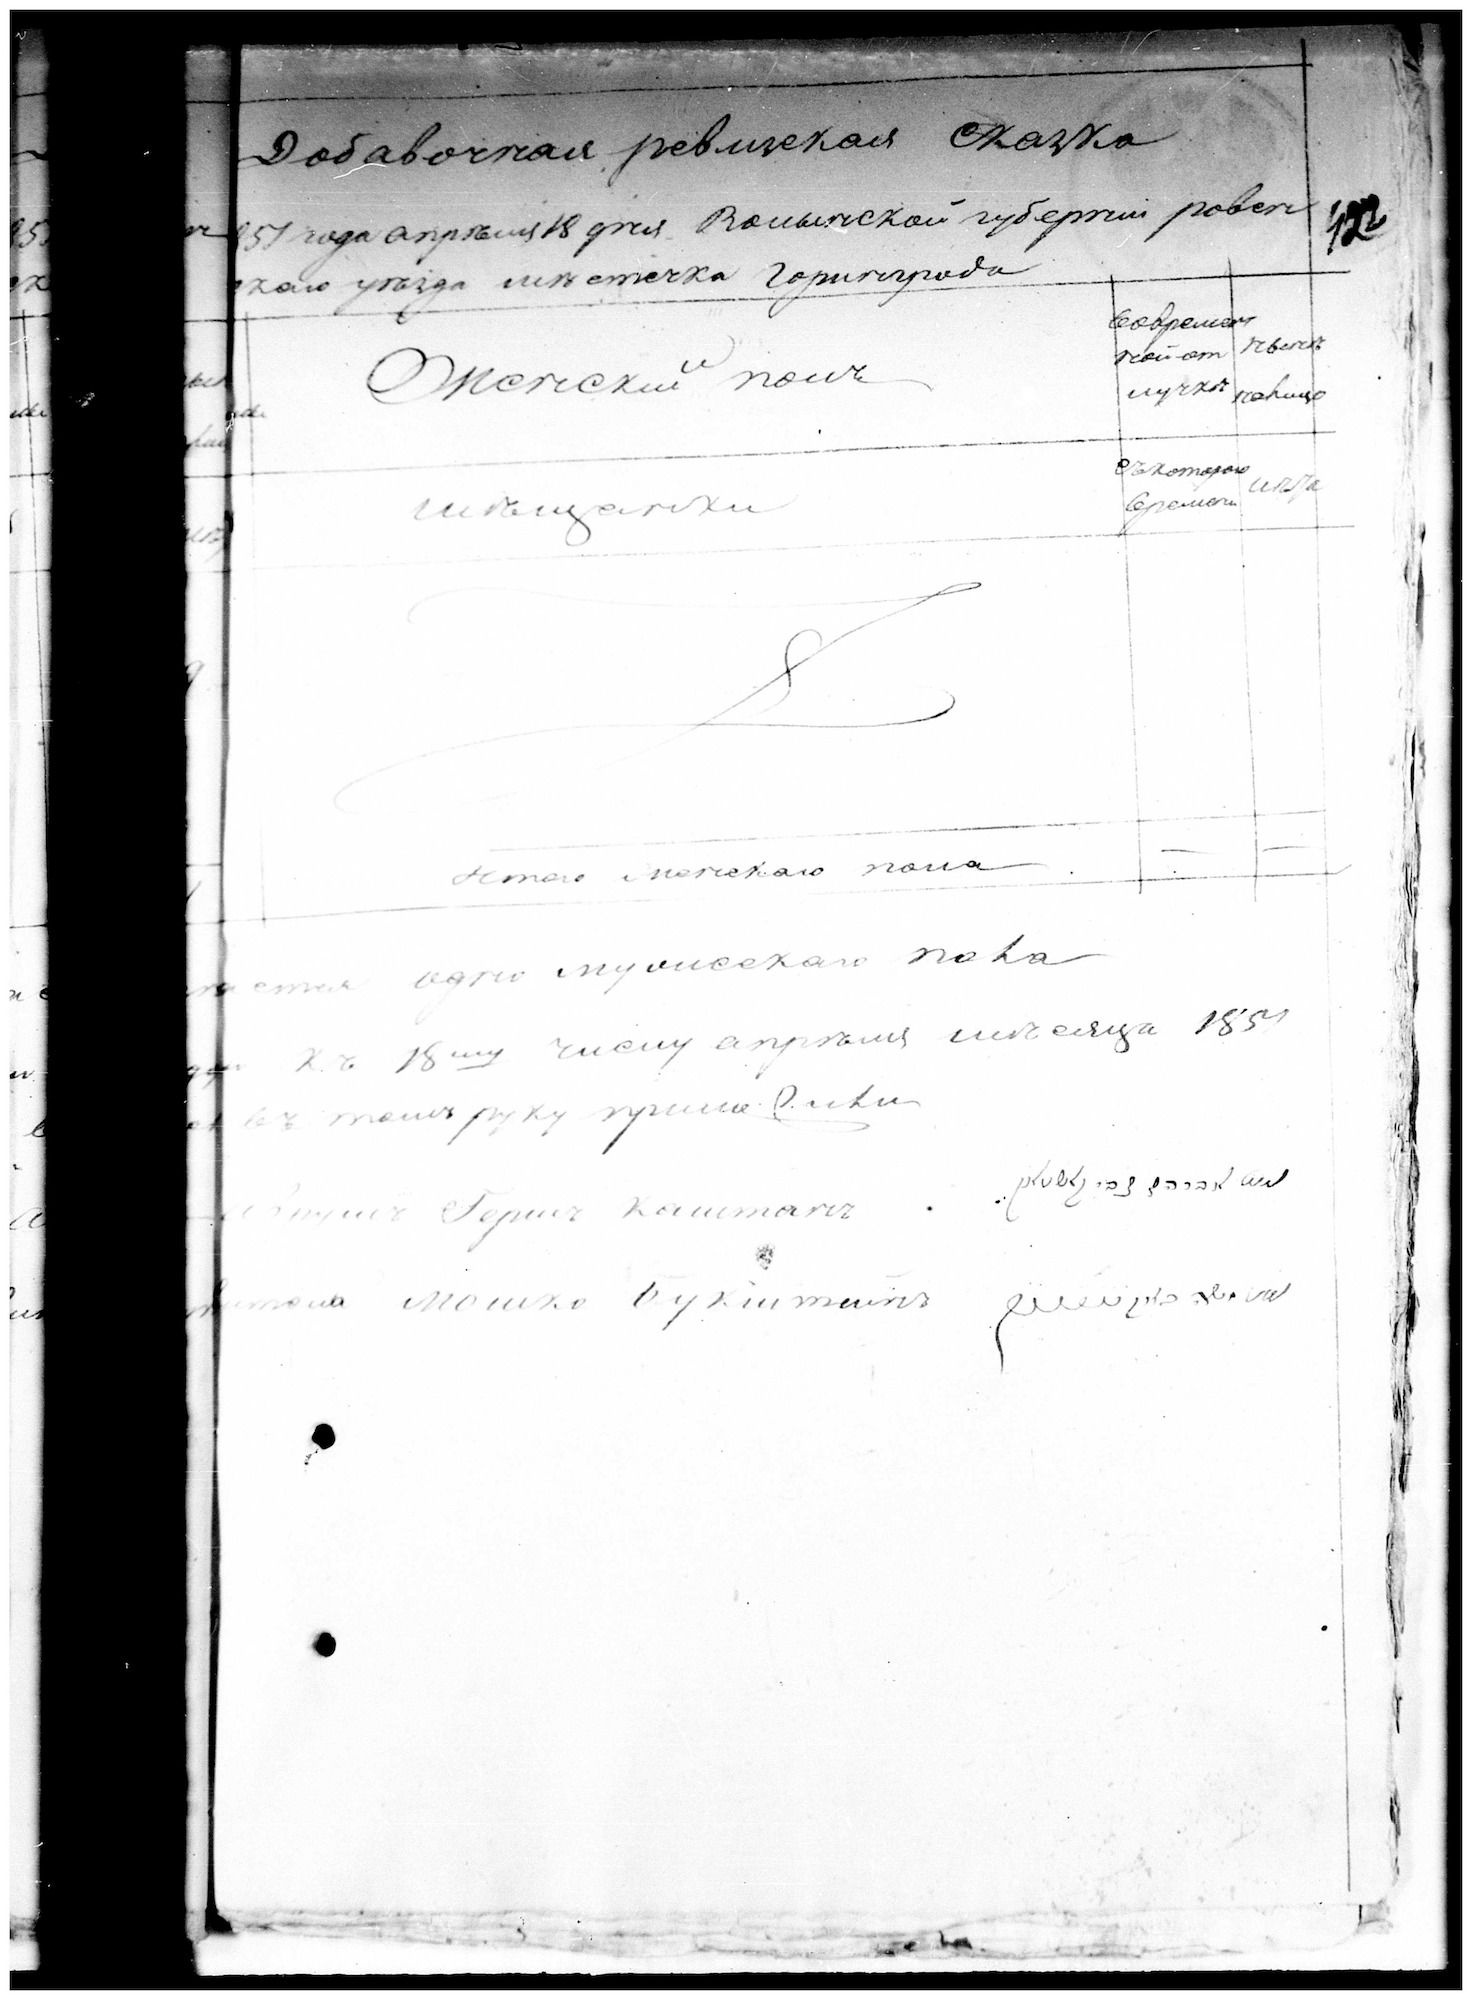 Добавочная ревизская сказка
851 года апреля 18 дня Волынской губернии ровен
122
скаго уезда местечка Горинграда
Женский полъ
Времен
ной от
лучке
ныне
на лицо
мещанки
съ котораго
времени
лета
Итого женскаго пола
одно мужескаго пола
къ 18му числу апреля месяца 1851
въ томъ руку приложили
Гершъ Каштанъ
Мошко Букштейнъ